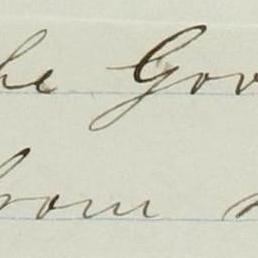 he Gov
from